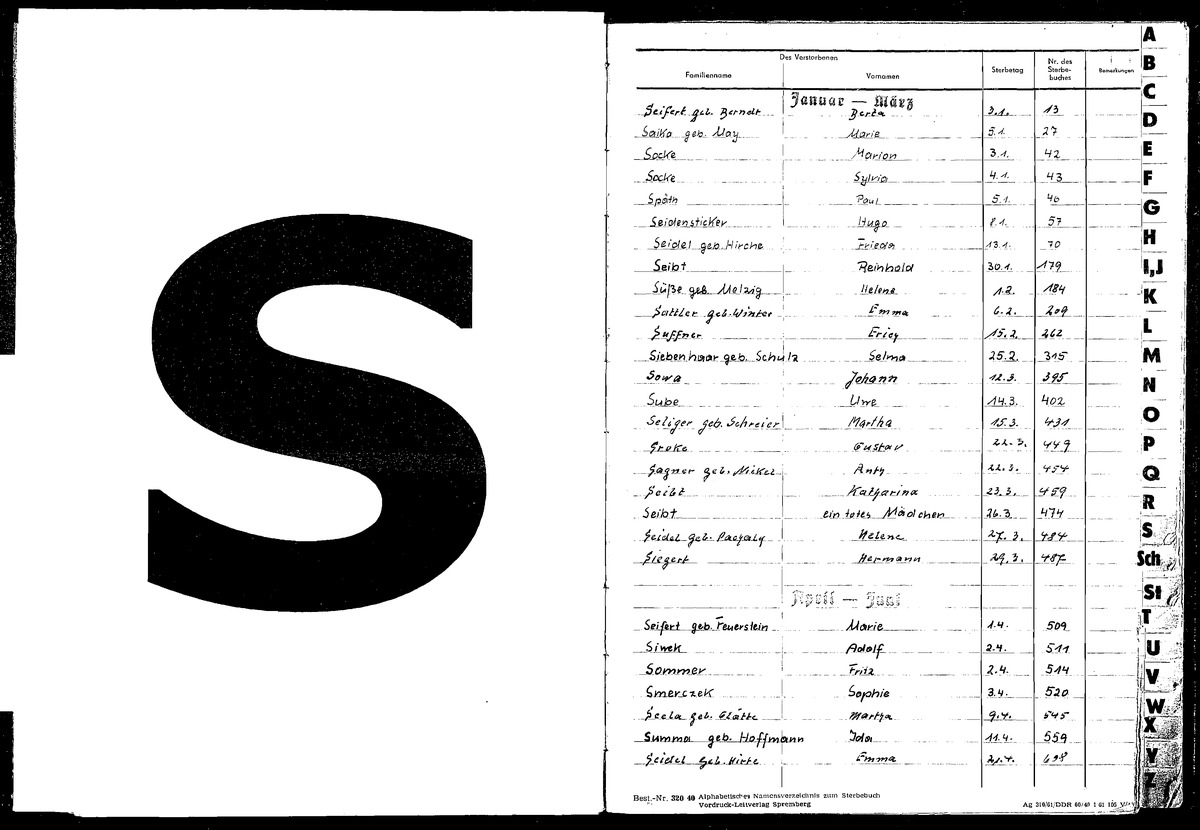 S
Des Verstorbenen
Familienname Vornamen Sterbetag Nr. des Sterbe-buches Bemerkungen
Januar — März
Seifert geb. Berndt Berta 3.1. 13
Saiko geb. May Marie 5.1. 27
Socke Marion 3.1. 42
Socke Sylvia 4.1. 43
Späth Paul 5.1. 46
Seidensticker Hugo 8.1. 57
Seidel geb. Hirche Frieda 13.1. 70
Seibt Reinhold 30.1. 179
Süße geb. Melzig Helene 1.2. 184
Sattler geb. Winter Emma 6.2. 209
Suffner Erich 15.2. 262
Siebenhaar geb. Schulz Selma 25.2. 315
Sowa Johann 12.3. 395
Sube Uwe 14.3. 402
Seliger geb. Schreier Martha 15.3. 431
Groke Gustav 22.3. 449
Sagner geb. Nickel 22.3. 454
Seibt Katharina 23.3. 459
Seibt ein totes Mädchen 26.3. 474
Seidel geb. Helene 27.3. 484
Siegert Hermann 29.3. 487
April — Juni
Seifert geb. Feuerstein Marie 1.4. 509
Siwek Adolf 2.4. 511
Sommer Fritz 2.4. 514
Smerczek Sophie 3.4. 520
Seela geb. Glätte Martha 9.4. 545
Summa geb. Hoffmann Ida 11.4. 559
Seidel geb. Hirte Emma
Best.-Nr. 320 40 Alphabetisches Namensverzeichnis zum Sterbebuch
Vordruck-Leitverlag Spremberg
Ag 310/61/DDR
A
B
C
D
E
F
G
H
I,J
K
L
M
N
O
P
Q
R
S
Sch
St
T
U
V
W
X
Y
Z